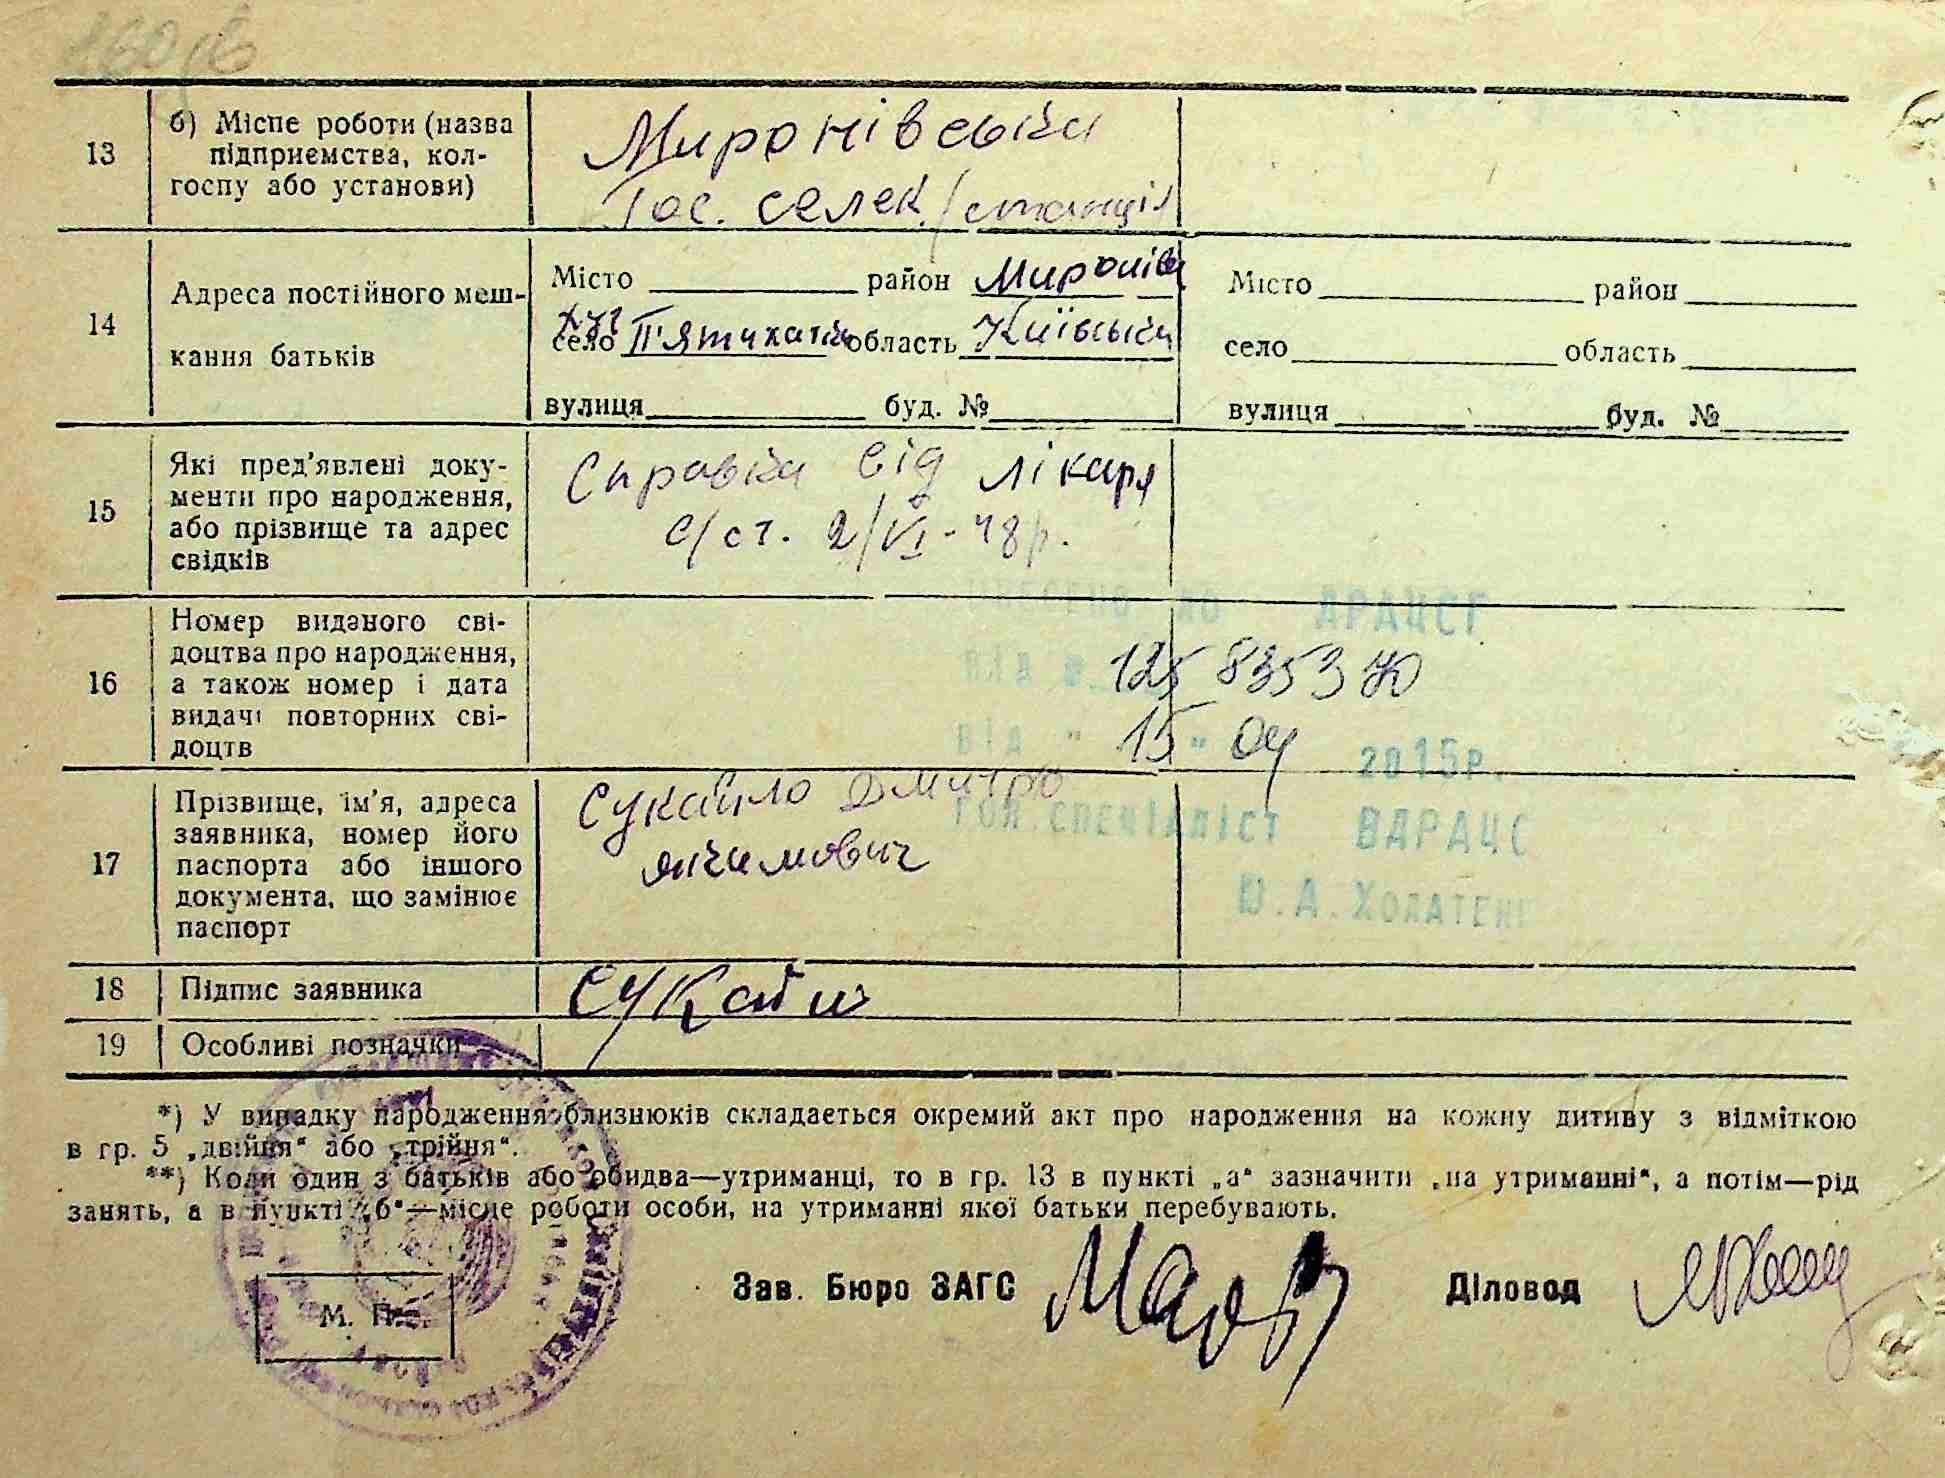 13
б) Місце роботи (назва
підприємства, кол-
госпу або установи)
Миронівська
Гос. селек./станція
14
Адреса постійного меш-
кання батьків
Місто район Миронівс
хут
село П'ятихатки область Київська
вулиця буд. №
Місто район
село область
вулиця буд. №
15
Які пред'явлені доку-
менти про народження,
або прізвище та адрес
свідків
Справка від лікаря
с/ст. 2/VI-48р.
16
Номер виданого сві-
доцтва про народження,
а також номер і дата
видачі повторних сві-
доцтв
ВНЕСЕНО ДО ДРАЦСГ
125 8353
від "15" 04 2015р.
ГОЛ.СПЕЦІАЛІСТ ВДРАЦС
Ю.А.
17
Прізвище, ім'я, адреса
заявника, номер його
паспорта або іншого
документа, що замінює
паспорт
Сукайло Дмитро
Якимович
18
Підпис заявника
19
Особливі позначки
*) У випадку народження близнюків складається окремий акт про народження на кожну дитину з відміткою
в гр. 5 „двійня“ або „трійня“.
**) Коли один з батьків або обидва—утриманці, то в гр. 13 в пункті „а“ зазначити „на утриманні“, а потім—рід
занять, а в пункті „б“—місце роботи особи, на утриманні якої батьки перебувають.
Зав. Бюро ЗАГС
Діловод
М. П.